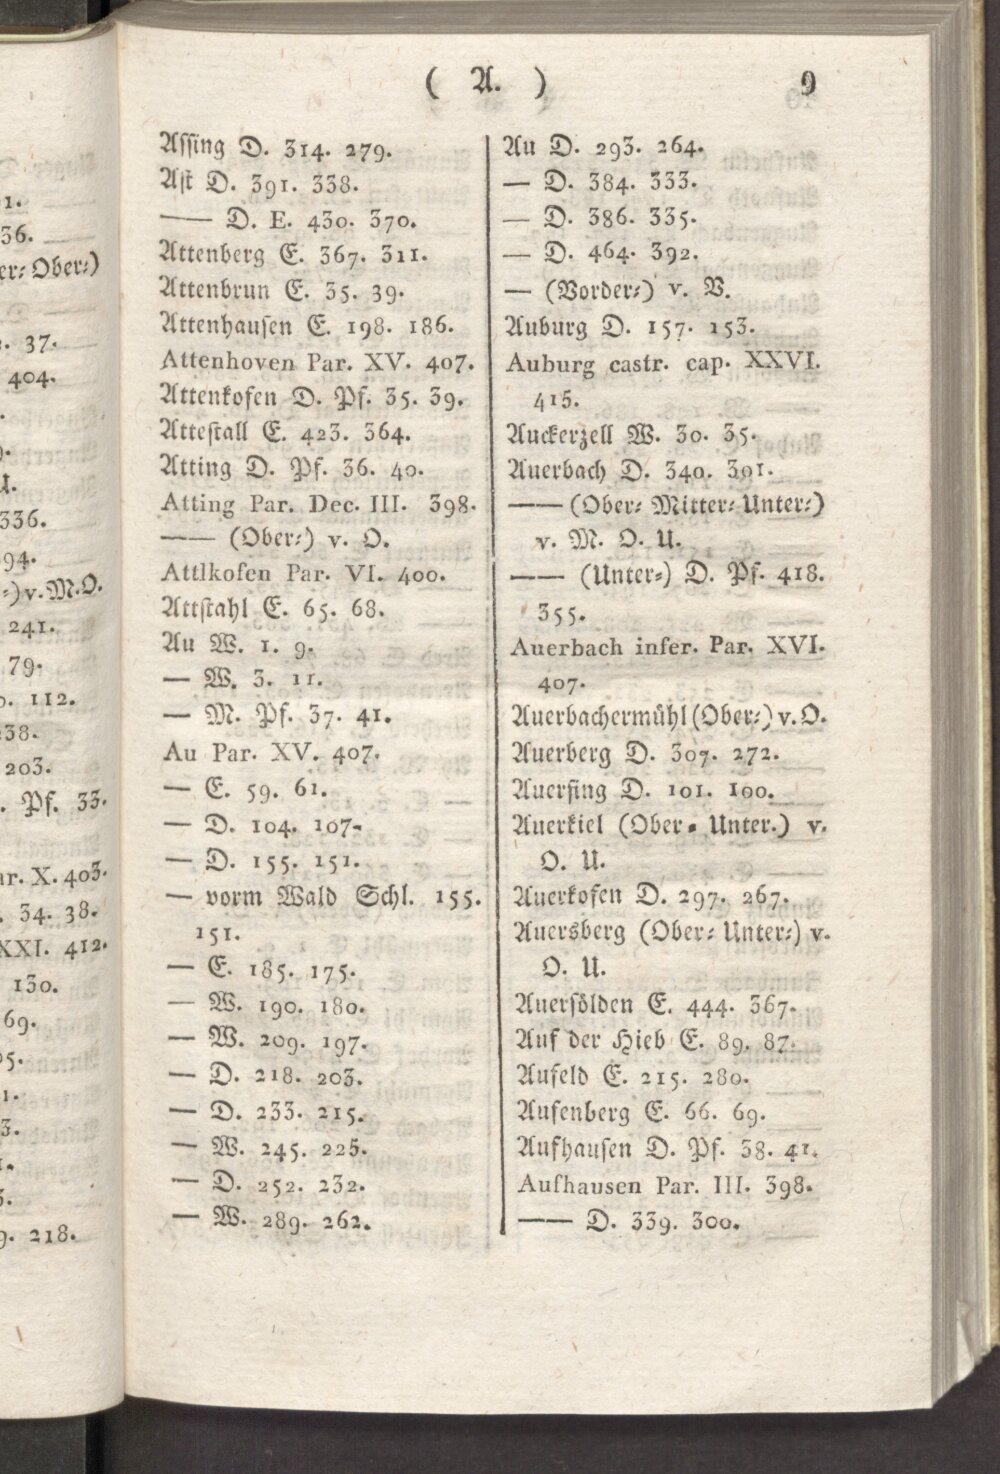 ( A. ) 9
Assing D. 314. 279.
Ast D. 391. 338.
—— D. E. 430. 370.
Attenberg E. 367. 311.
Attenbrun E. 35. 39.
Attenhausen E. 198. 186.
Attenhoven Par. XV. 407.
Attenkofen D. Pf. 35. 39.
Attestall E. 423. 364.
Atting D. Pf. 36. 40.
Atting Par. Dec. III. 398.
—— (Ober⸗) v. O.
Attlkofen Par. VI. 400.
Attstahl E. 65. 68.
Au W. 1. 9.
— W. 3. 11.
— M. Pf. 37. 41.
Au Par. XV. 407.
— E. 59. 61.
— D. 104. 107.
— D. 155. 151.
— vorm Wald Schl. 155.
151.
— E. 185. 175.
— W. 190. 180.
— W. 209. 197.
— D. 218. 203.
— D. 233. 215.
— W. 245. 225.
— D. 252. 232.
— W. 289. 262.
Au D. 293. 264.
— D. 384. 333.
— D. 386. 335.
— D. 464. 392.
— (Vorder⸗) v. V.
Auburg D. 157. 153.
Auburg castr. cap. XXVI.
415.
Auckerzell W. 30. 35.
Auerbach D. 340. 301.
—— (Ober⸗ Mitter⸗ Unter⸗)
v. M. O. U.
—— (Unter⸗) D. Pf. 418.
355.
Auerbach infer. Par. XVI.
407.
Auerbachermühl (Ober⸗) v. O.
Auerberg D. 307. 272.
Auerfing D. 101. 100.
Auerkiel (Ober⸗ Unter.) v.
O. U.
Auerkofen D. 297. 267.
Auersberg (Ober⸗ Unter⸗) v.
O. U.
Auersölden E. 444. 367.
Auf der Hieb E. 89. 87.
Aufeld E. 215. 280.
Aufenberg E. 66. 69.
Aufhausen D. Pf. 38. 41.
Aufhausen Par. III. 398.
—— D. 339. 300.
1.
36.
er⸗ Ober⸗)
37.
404.
U.
336.
94.
⸗) v. M. O.
241.
79.
112.
238.
203.
Pf. 33.
ar. X. 403.
34. 38.
XXI. 412.
130.
69.
5.
1.
3.
218.